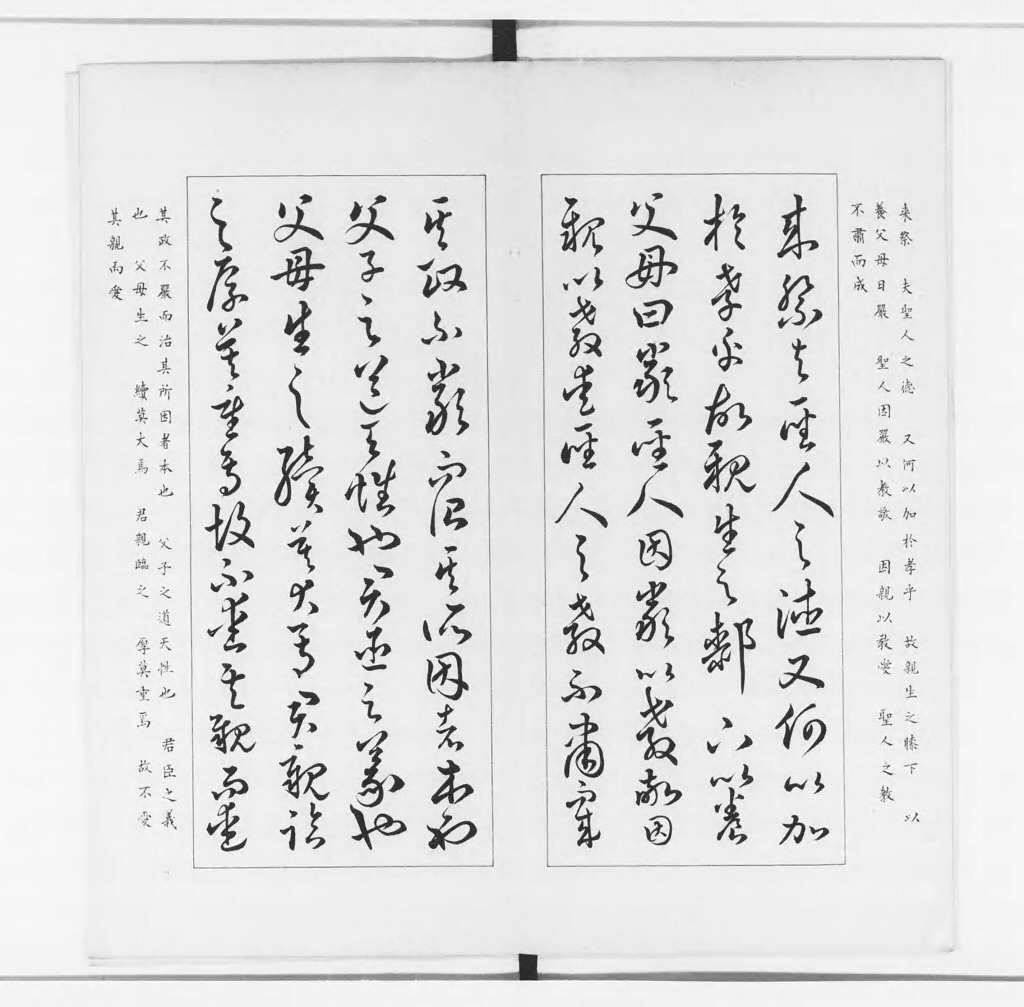 来祭 夫聖人之德 又何以加於孝乎 故親生之膝下 以
養父母日嚴 聖人因嚴以教敬 因親以教愛 聖人之教
不肅而成
来祭夫聖人之德又何以加
於孝乎故親生之膝下以養
父母日嚴聖人因嚴以教敬因
親以教愛聖人之教不肅而成
其政不嚴而治其所因者本也
父子之道天性也君臣之義也
父母生之續莫大焉君親臨
之厚莫重焉故不愛其親而愛
其政不嚴而治其所因者本也 父子之道天性也 君臣之義
也 父母生之 續莫大焉 君親臨之 厚莫重焉 故不愛
其親而愛